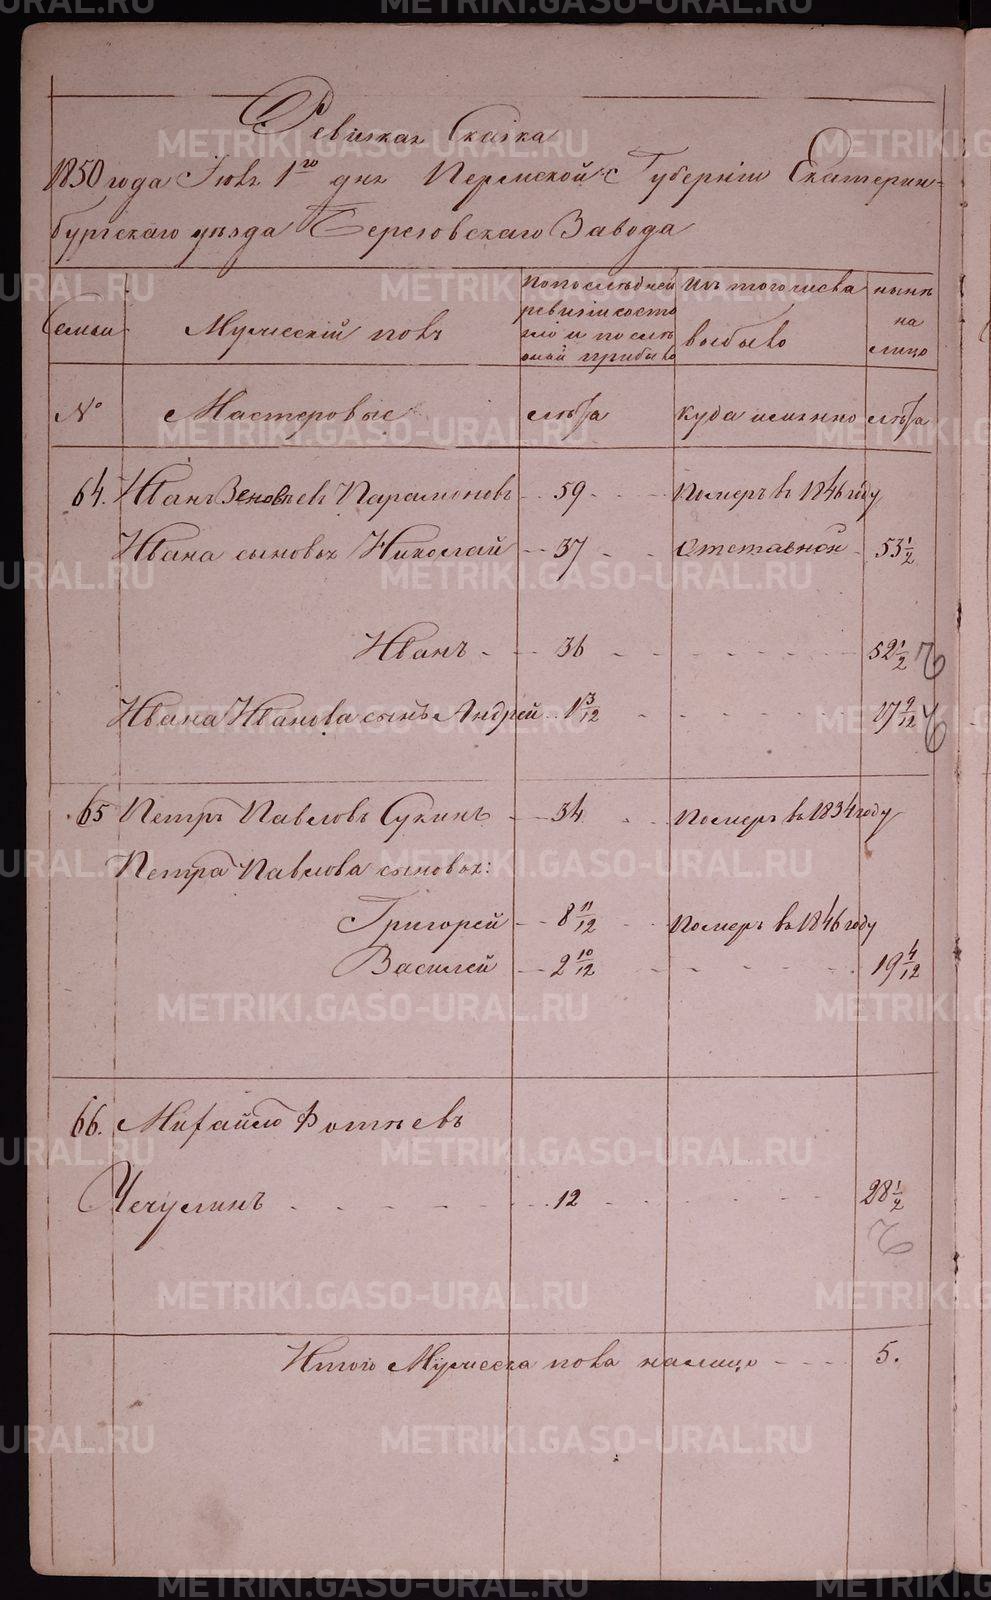 Ревизкая Сказка
1850 года Іюля 1го дня Пермской Губерніи Екатерин-
бургскаго уѣзда Березовскаго Завода
Семьи
Мужескій полъ
По последней ревизіи состояло и после оной прибыло
Изъ того числа выбыло
ныне на лицо
№ Мастеровые лѣта куда именно лѣта
64. Иванъ Зеновьев Парамоновъ 59 Померъ в 1846 году
Ивана сыновья Николай 37 Отставной 53 1/2
Иванъ 36 52 1/2
Ивана Иванова сынъ Андрей 1 3/12 17 9/12
65 Петръ Павловъ Сукинъ 34 Померъ в 1834 году
Петра Павлова сыновья:
Григорей 8 11/12 Померъ в 1846 году
Василей 2 10/12 19 4/12
66. Михайло Фотѣевъ
Чечулинъ 12 28 1/2
Итого Мужеска пола налицо 5.
METRIKI.GASO-URAL.RU